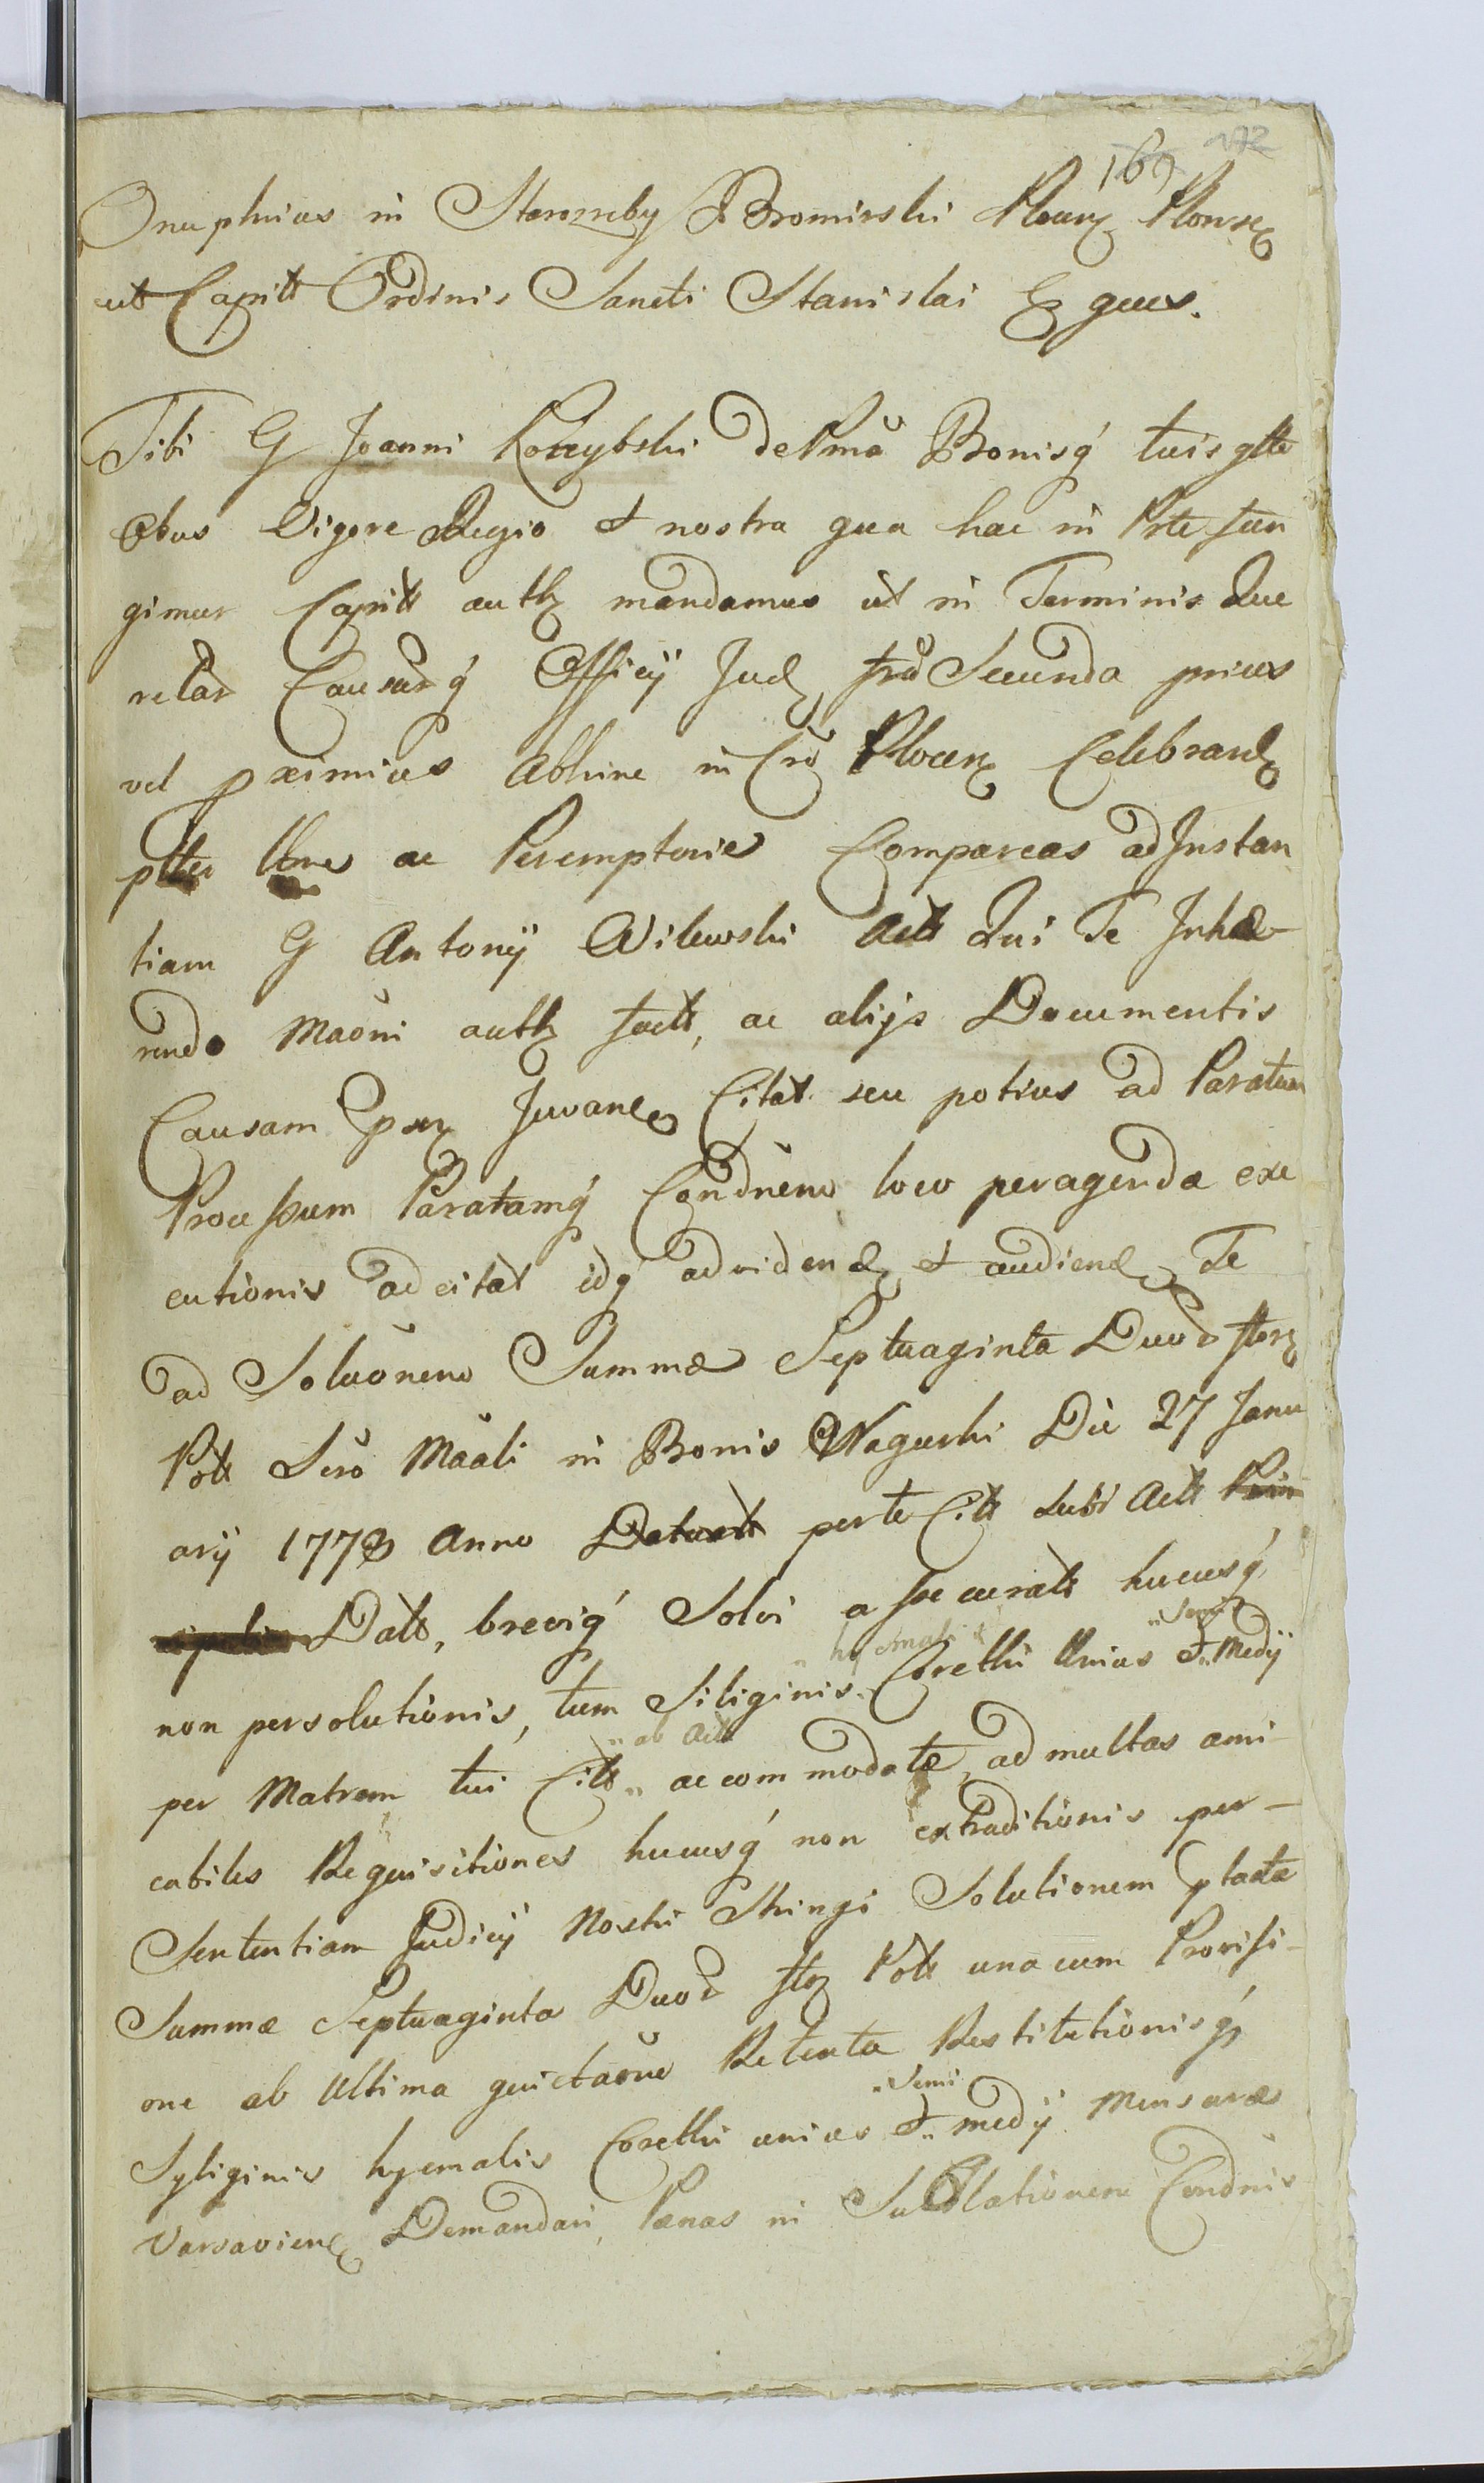 169 172
Onuphrius in Starozreby Bromirski Plocen Plonsq
utt Capitt Ordinis Sancti Stanislai Eques.
Tibi G Joanni Kobrzybski de Pnã Bonisq́ tuis gtte
Obus Vigore Regio et nostra qua hac in Prte fun
gimur Capitt autte mandamus ut in Terminis Que
relar Causarq́ Officij Jud, frã Secunda prius
vel pximius abhinc in Crõ Plocen Celebrand
pltter ltme ac Peremptorie Compareas ad Instan
tiam G Antonij Wilewski Actt Qui Te Inhæ
rendo Maõni autte factt, ac alijs Documentis
Causam psen Juvane Citat seu potius ad Paratum
Processum Paratamq́ Condnẽne loco peragenda exe
cutionis adcitat idq́ ad vidend et audiend Te
ad Soluõnem Summæ Septuaginta Duor flor
Potts Lirõ Maãli in Bonis Naguski Die 27 Janu
arij 1778 Anno perte Citt Actt
Datt, brevig Solvi assecuratt hucusq́
non persolutionis, tum Siliginis „hyemalis Corethi Unius et „Semi„ Medij
per Matrem tui Citt „ab Actt„ accommodatæ, ad multas ami
cabiles Requisitiones hucusq́ non extraditionis per
Sententiam Judicij Nostri Stringi Solutionem ptactæ
Summæ Septuaginta Duor flor Potts una cum Provisi
one ab Ultima quietaõne Retenta Restitutionisq́
Syliginis hyemalis Corethi unius et „Semi„ medij Mensuræ
Varsavien Demandari, Pænas in Sublationem Condnis